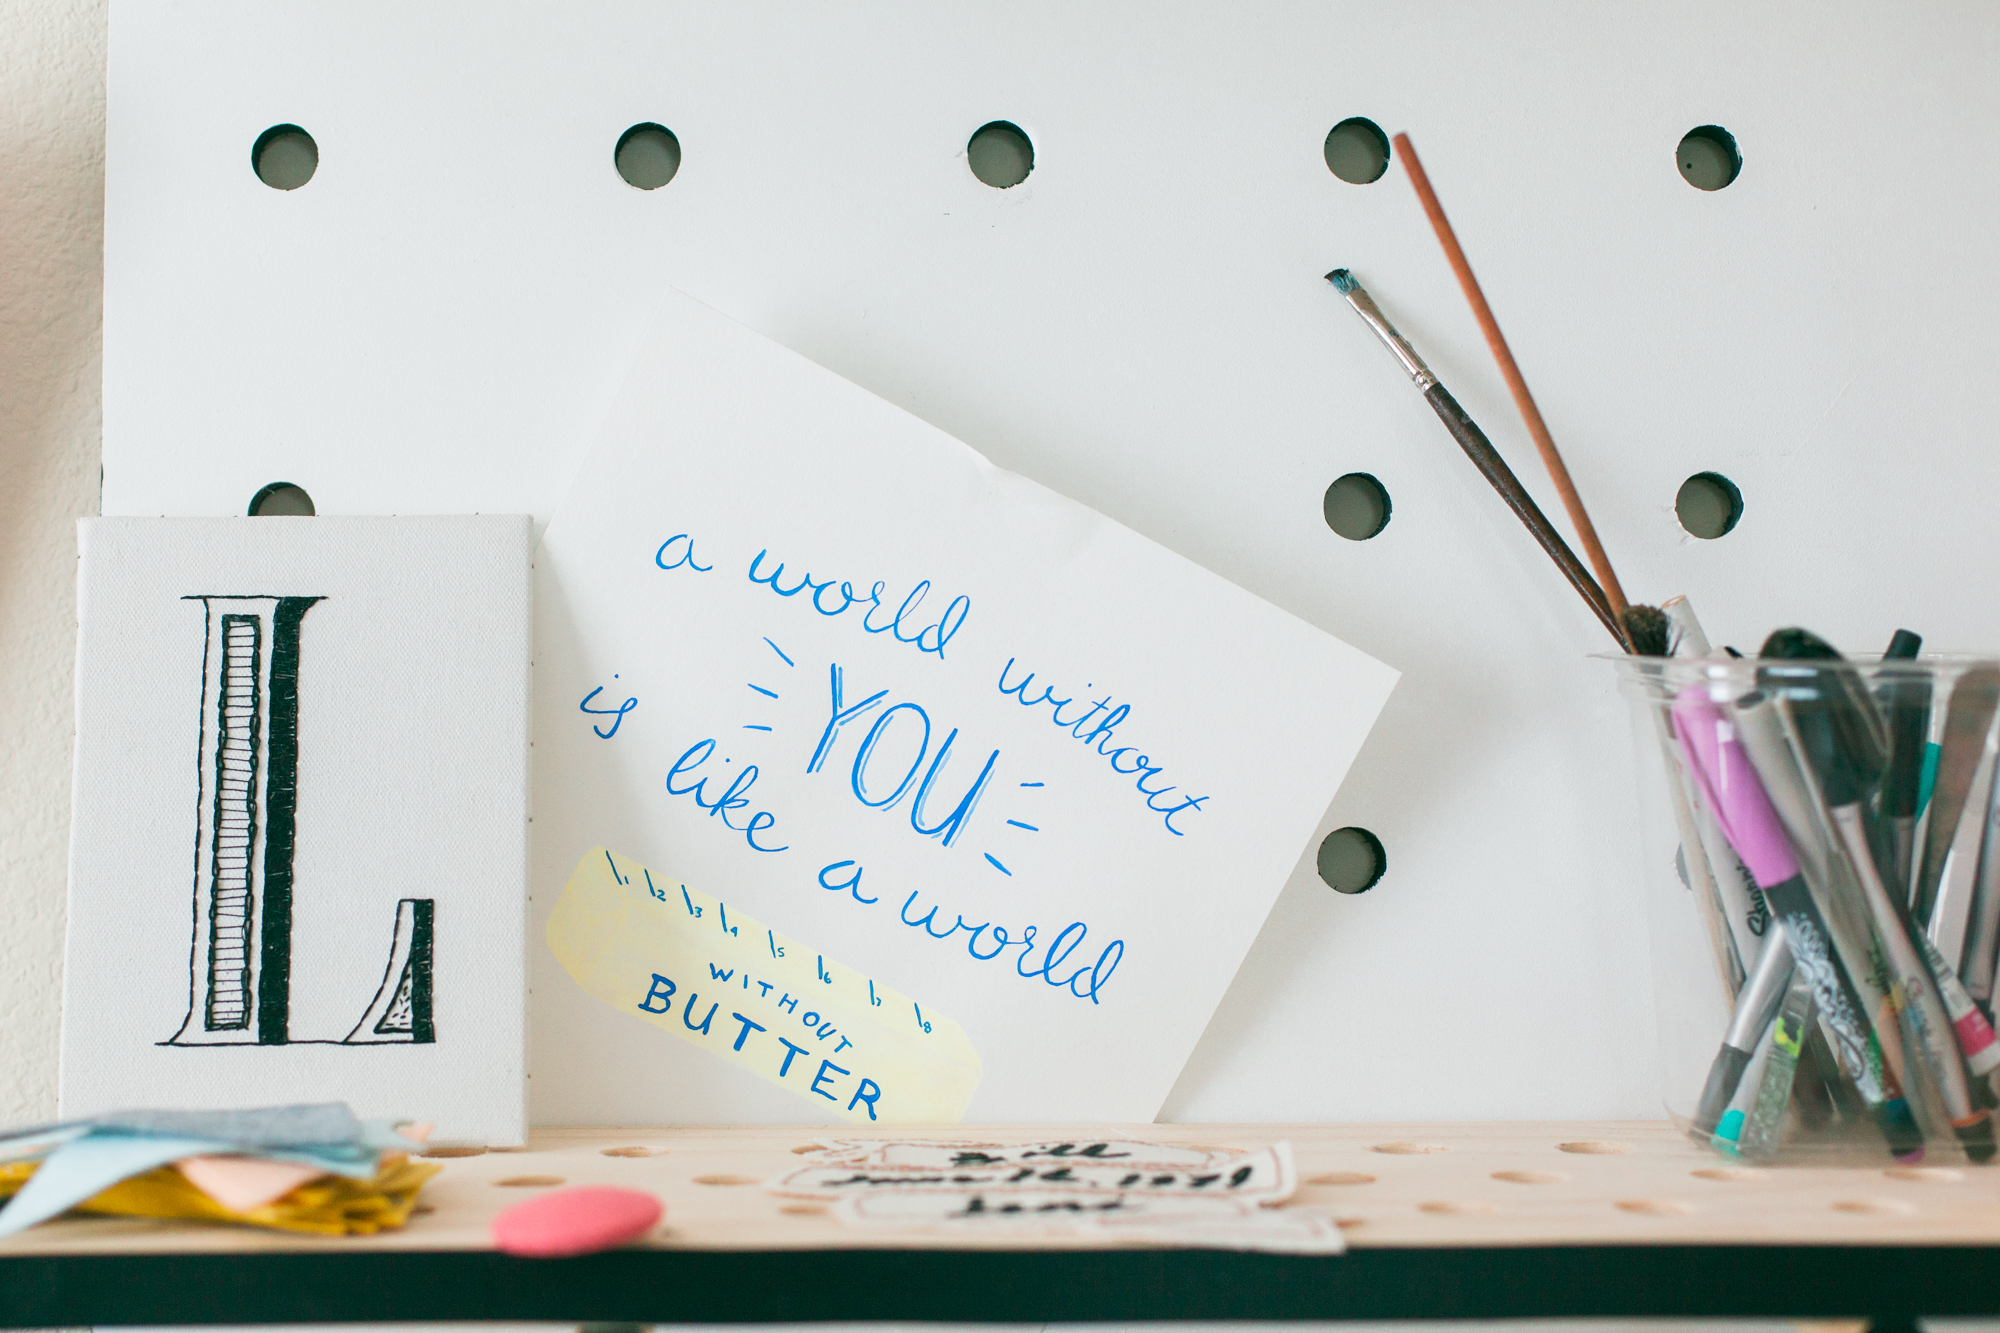 L
a world without
YOU
is like a world
1 2 3 4 5 6 7 8
WITHOUT
BUTTER
Sharpie